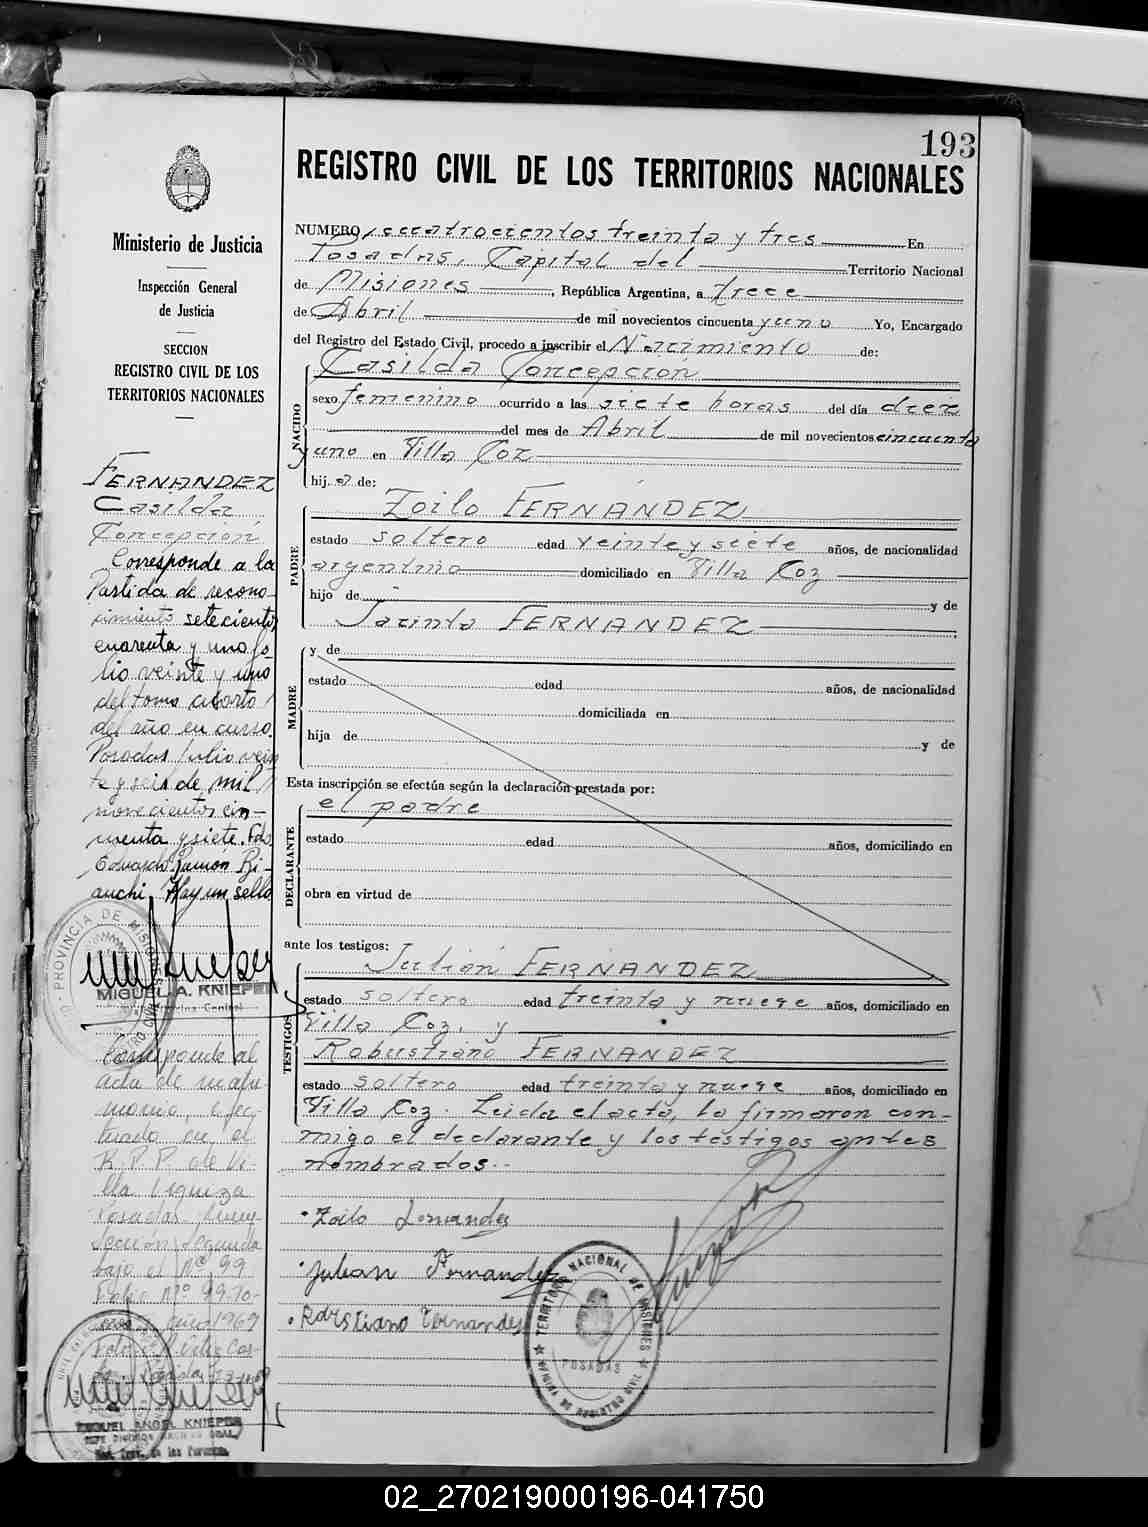 193
REGISTRO CIVIL DE LOS TERRITORIOS NACIONALES
Ministerio de Justicia
Inspección General
de Justicia
SECCION
REGISTRO CIVIL DE LOS
TERRITORIOS NACIONALES
FERNÁNDEZ
Casilda
Concepción
Corresponde a la
Partida de recono-
cimiento setecientos
cuarenta y uno fo
lio veinte y uno
del tomo cuarto
del año en curso.
Posadas Julio vein
te y seis de mil
novecientos cin-
cuenta y siete. Fdo
Eduardo Ramón Bi-
anchi. Hay un sello
PROVINCIA DE MISIONES
MIGUEL A. KNIEPER
Corresponde al
acta de matri-
monio, efec
tuado en el
R.P.P. de Vi-
lla Urquiza
Posadas
Sección Segunda
bajo el Nº 99
Folio Nº 99-
año 1969
MIGUEL ANGEL KNIEPER
NUMERO cuatrocientos treinta y tres En
Posadas, Capital del Territorio Nacional
de Misiones, República Argentina, a trece
de Abril de mil novecientos cincuenta y uno Yo, Encargado
del Registro del Estado Civil, procedo a inscribir el Nacimiento de:
NACIDO
Casilda Concepción
sexo femenino ocurrido a las siete horas del día diez
del mes de Abril de mil novecientos cincuenta
y uno en Villa Coz
hij a de:
PADRE
Zoilo FERNÁNDEZ
estado soltero edad veinte y siete años, de nacionalidad
argentino domiciliado en Villa Coz
hijo de y de
Jacinta FERNANDEZ
MADRE
y de
estado edad años, de nacionalidad
domiciliada en
hija de y de
Esta inscripción se efectúa según la declaración prestada por:
DECLARANTE
el padre
estado edad años, domiciliado en
obra en virtud de
ante los testigos:
TESTIGOS
Julián FERNANDEZ
estado soltero edad treinta y nueve años, domiciliado en
Villa Coz, y
Robustiano FERNANDEZ
estado soltero edad treinta y nueve años, domiciliado en
Villa Coz. Leida el acta, la firmaron con-
migo el declarante y los testigos antes
nombrados.-
Zoilo Fernandez
Julian Fernandez
Fernandez
TERRITORIO NACIONAL DE MISIONES
POSADAS
02_270219000196-041750